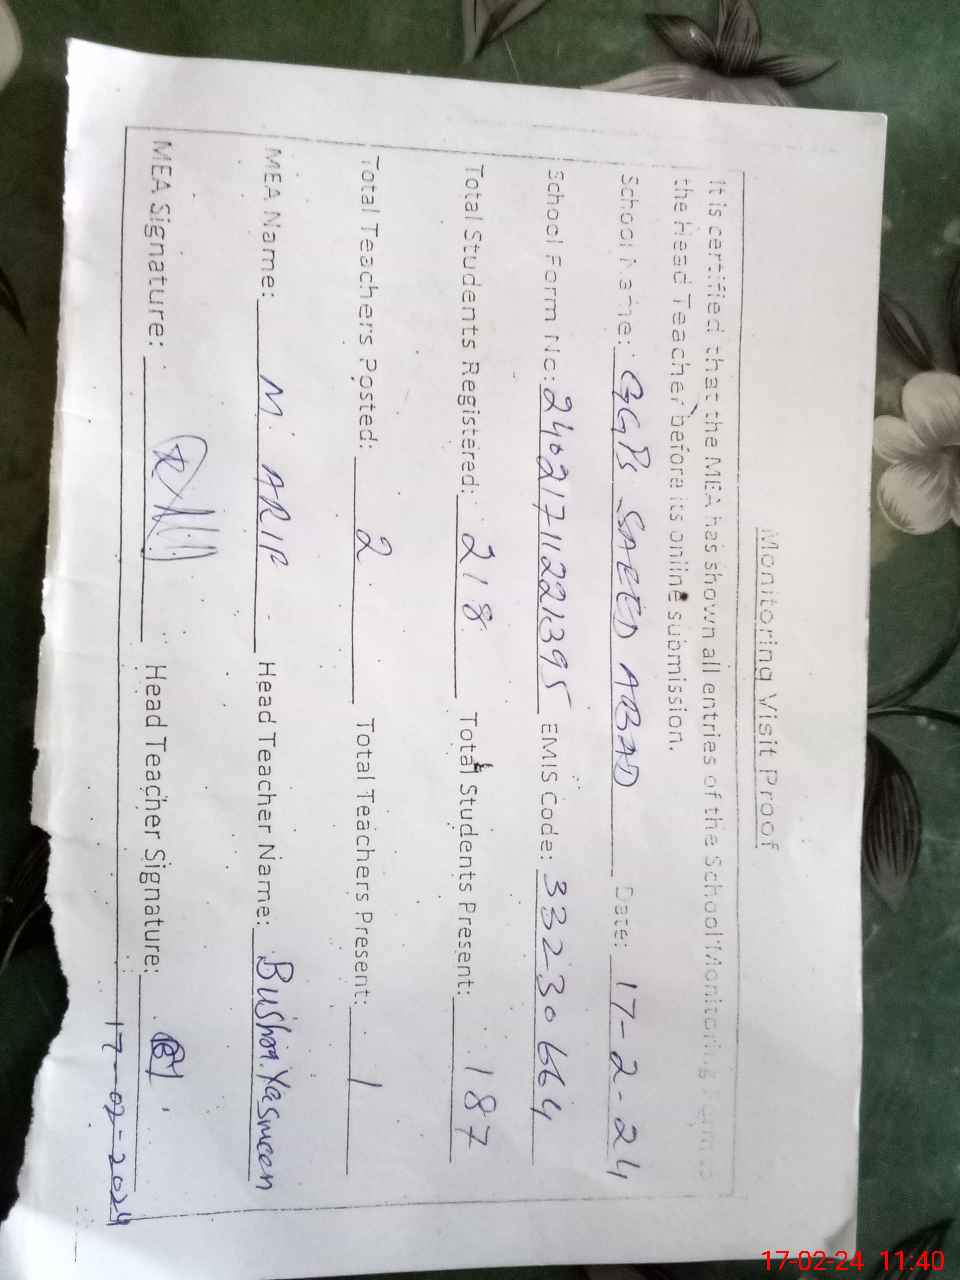 Monitoring Visit Proof
It is certified that the MEA has shown all entries of the School Monitoring Form to
the Head Teacher before its online submission.
School Name: GGPS SAEED ABAD Date: 17-2-24
School Form No: 24021711221395 EMIS Code: 33230664
Total Students Registered: 218 Total Students Present: 187
Total Teachers Posted: 2 Total Teachers Present: 1
MEA Name: M. ARIF Head Teacher Name: Bushra.Yasmeen
MEA Signature: Head Teacher Signature:
17-02-2024
17-02-24 11:40